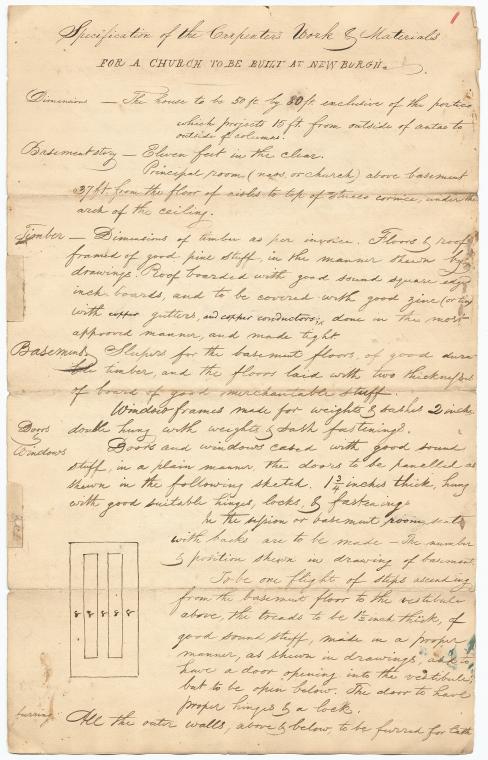 Specification of the Carpenters Work & Materials
FOR A CHURCH TO BE BUILT AT NEWBURGH.
Dimensions — The house to be 50 ft by 80 ft. exclusive of the portico
which projects 15 ft. from outside of antae to
outside of columns.
Basement story — Eleven feet in the clear.
Principal room (naos, or church) above basement
37 ft from the floor of aisles to top of stucco cornice, under the
arch of the ceiling.
Timber — Dimensions of timber as per invoice. Floors & roof
framed of good pine stuff, in the manner shewn by
drawings. Roof boarded with good sound square edge
inch boards, and to be covered with good zinc (or tin)
with copper gutters, and copper conductors; done in the most
approved manner, and made tight
Basement, Sleepers for the basement floors, of good dura
ble timber, and the floors laid with two thicknesses
of board of good merchantable stuff.
Window frames made for weights & sashes 2 inch
double hung with weights & sash fastenings.
Doors & Windows
Doors and windows cased with good sound
stuff, in a plain manner, the doors to be panelled as
shewn in the following sketch. 1 3/4 inches thick, hung
with good suitable hinges, locks, & fastenings
In the session or basement room, seats
with backs are to be made — The number
& position shewn in drawing of basement
To be one flight of steps ascending
from the basement floor to the vestibule
above, the treads to be 1½ inch thick, of
good sound stuff, made in a proper
manner, as shewn in drawings, and to
have a door opening into the vestibule,
but to be open below. The door to have
proper hinges & a lock.
8 8 8 8 8
furring All the outer walls, above & below, to be furred for lath